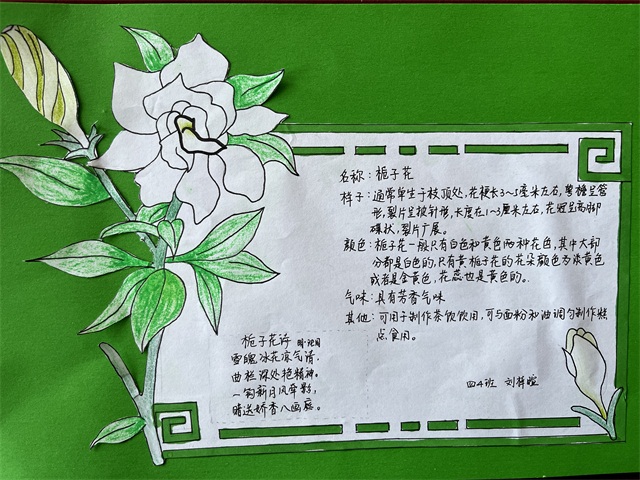 名称：栀子花
样子：通常单生于枝顶处，花梗长3～5厘米左右，萼檐呈管
形，裂片呈披针形，长度在1～3厘米左右，花冠呈高脚
碟状，裂片广展。
颜色：栀子花一般只有白色和黄色两种花色，其中大部
分都是白色的，只有黄栀子花的花朵颜色为淡黄色
或者是金黄色，花蕊也是黄色的。
气味：具有芳香气味
其他：可用于制作茶饮饮用，可与面粉和油调匀制作糕
点食用。
栀子花诗
雪魄冰花凉气清，
曲栏深处艳精神。
一钩新月风牵影，
暗送娇香入画庭。
四4班 刘梓煊